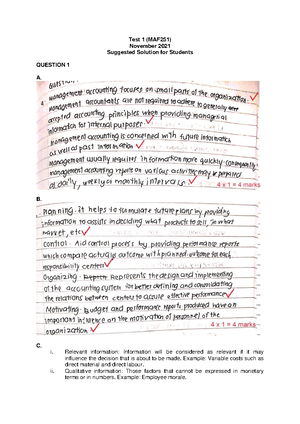 Test 1 (MAF251)
November 2021
Suggested Solution for Students
QUESTION 1
A.
management accounting focuses on small parts of the organization.
management accountants are not required to adhere to generally
accepted accounting principles when providing managerial
information for internal purposes
management accounting is concerned with future information
as well as past information
management usually requires information more quickly
management reports on various activities may be prepared
daily, weekly or monthly intervals
4 x 1 = 4 marks
B.
Planning. It helps to formulate future plans by providing
information to assist in deciding what products to sell, in what
market, etc
control. Aid control process by providing performance reports
which compare actual outcome with planned outcome for each
responsibility centers
Organizing. Represents the design and implementing
of the accounting system for better defining and consolidating
the relations between centers to assure effective performance
Motivating. budget and performance reports produced have an
important influence on the motivation of personnel of the
organization
4 x 1 = 4 marks
C.
i. Relevant information: Information will be considered as relevant if it may
influence the decision that is about to be made. Example: Variable costs such as
direct material and direct labour.
ii. Qualitative information: Those factors that cannot be expressed in monetary
terms or in numbers. Example: Employee morale.